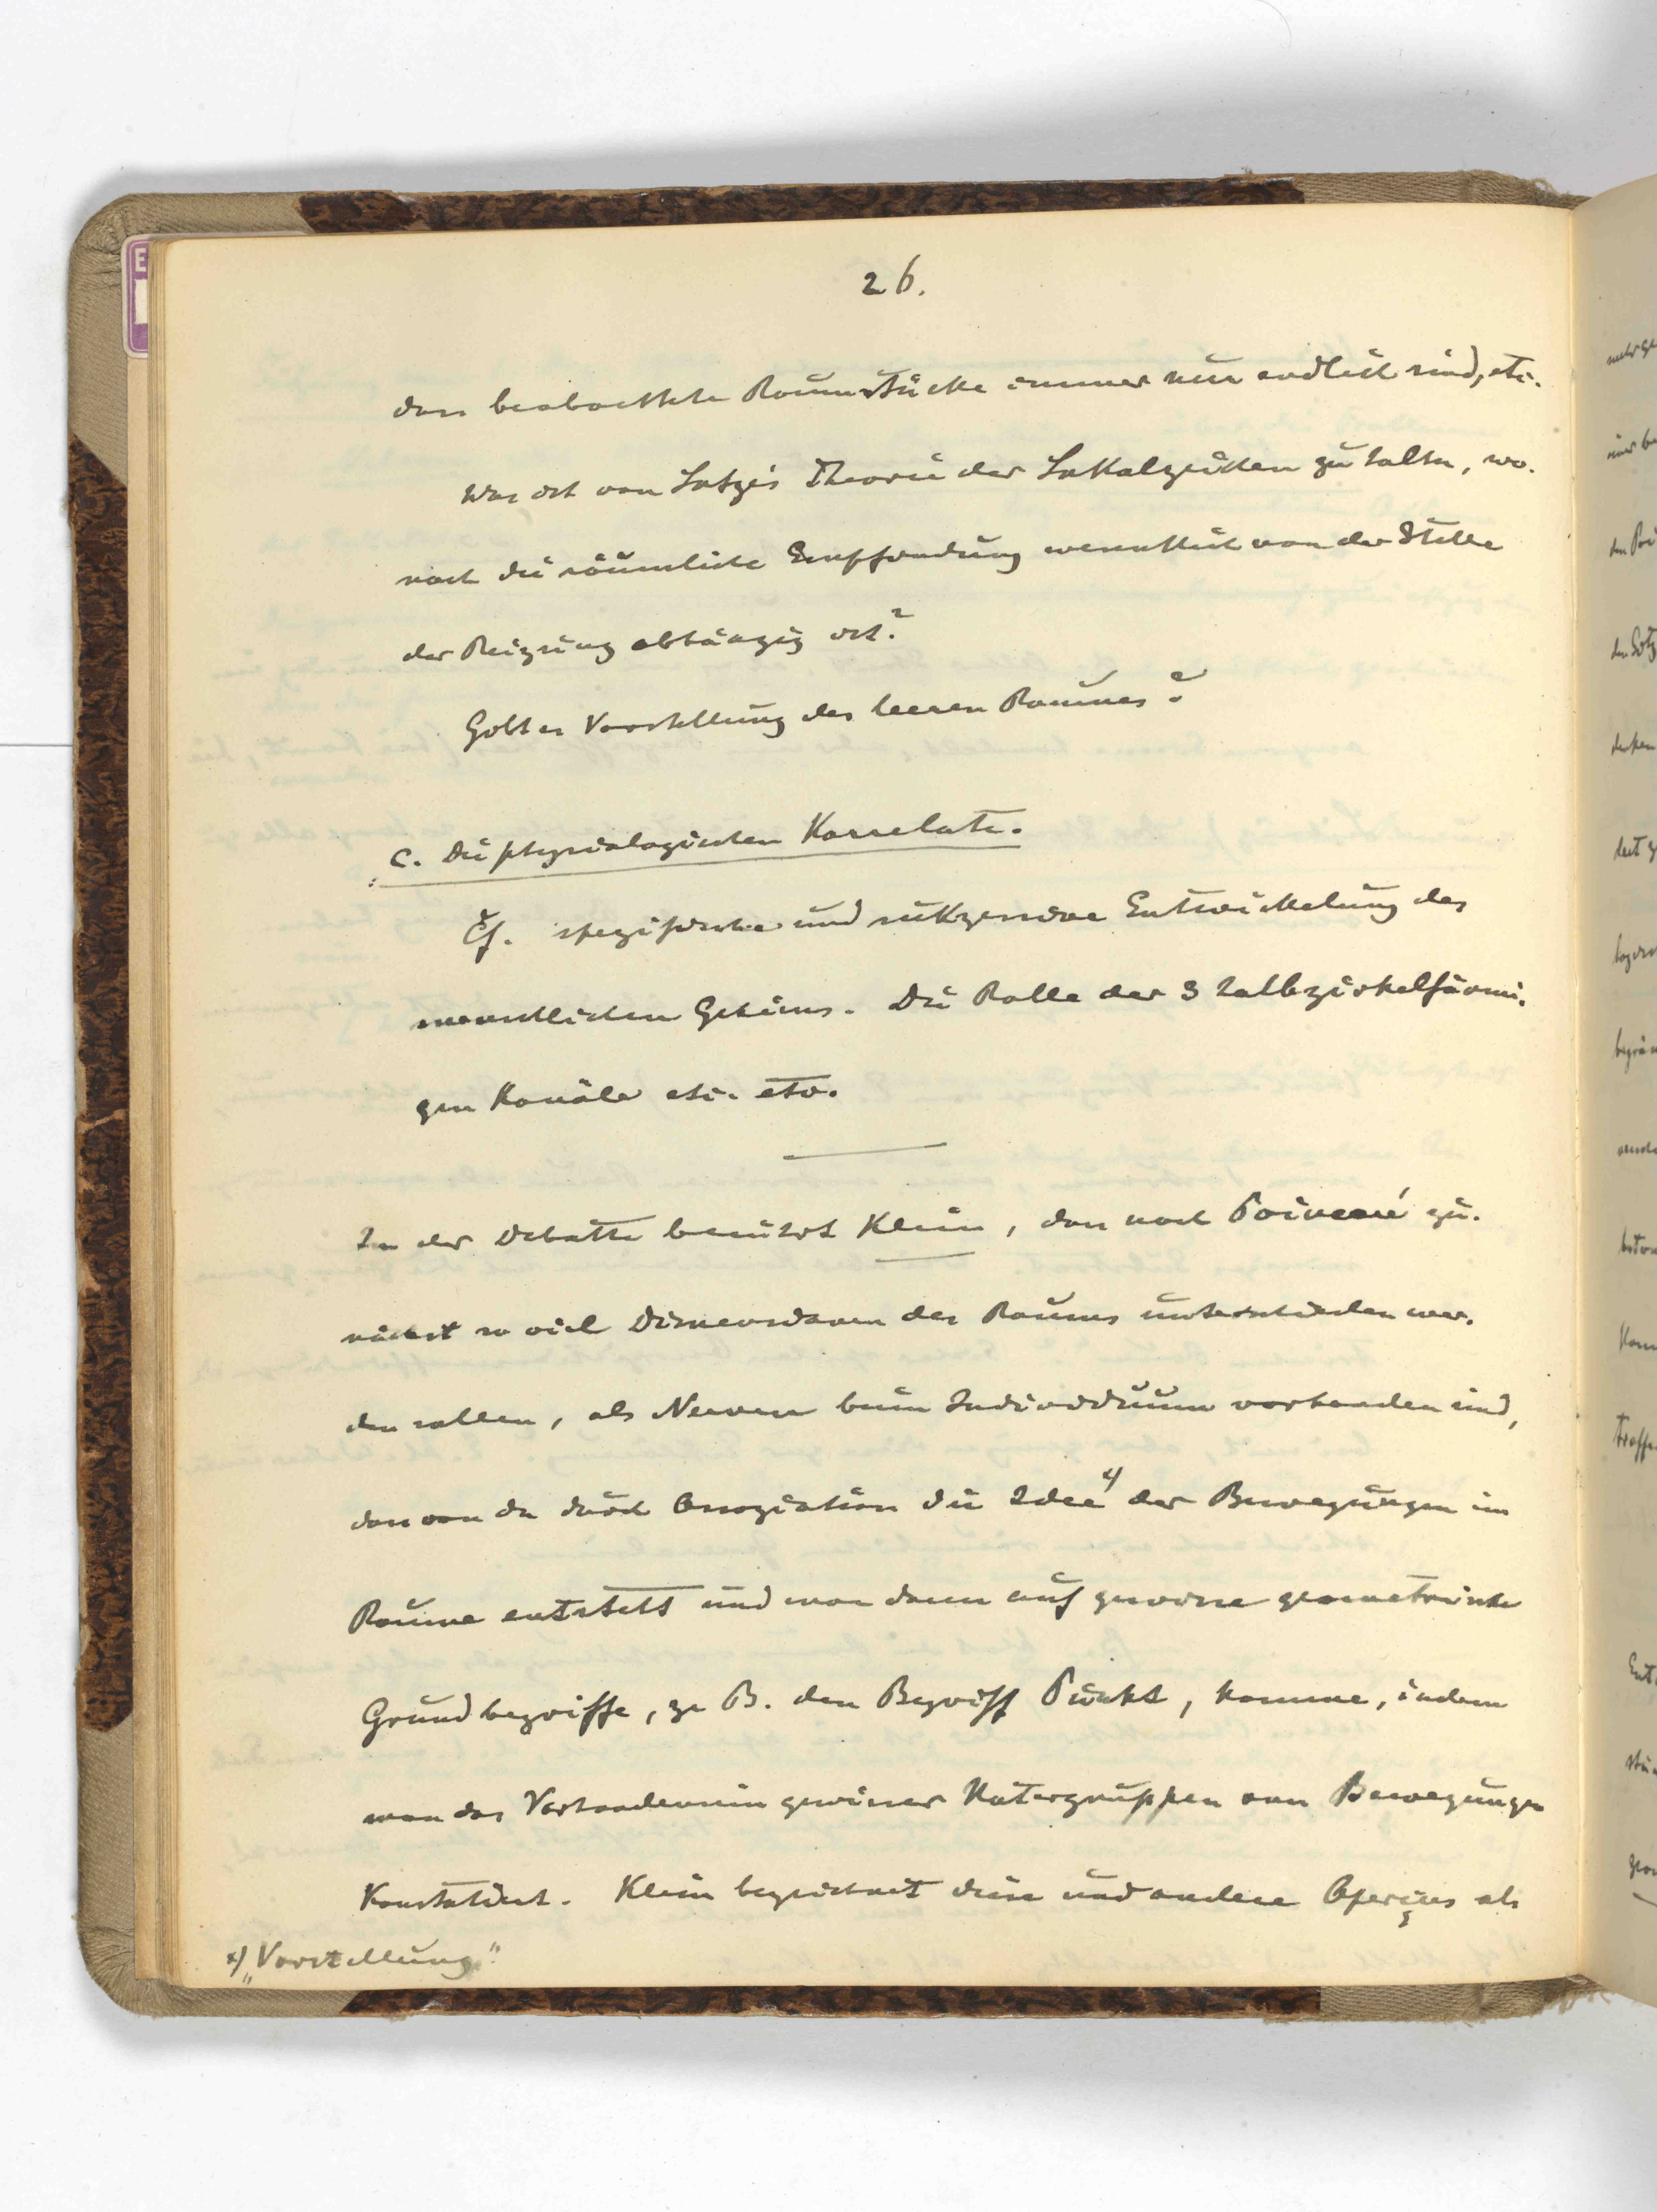 26.
dass beobachtete Raumstücke immer nur endlich sind, etc.
Was ist von Lotze's Theorie der Lokalzeichen zu halten, wo-
nach die räumliche Empfindung wesentlich von der Stelle
der Reizung abhängig ist?
Gibt es Vorstellung des leeren Raumes?
C. Die physiologischen Korrelate.
Cf. spezifische und sukzessive Entwickelung des
menschlichen Gehirns. Die Rolle der 3 halbzirkelförmi-
gen Kanäle etc. etc.
In der Debatte Klein, dass nach Poincaré zu-
nächst so viel Dimensionen des Raumes unterschieden wer-
den sollen, als Nerven beim Individuum vorhanden sind,
dass von da durch Assoziation die Idee x) der Bewegungen im
Raume entsteht und man dann auf gewisse geometrische
Grundbegriffe, z. B. den Begriff Punkt, komme, indem
man das Vorhandensein gewisser Untergruppen von Bewegungen
konstatiert. Klein bezeichnet diese und andere Aperçus als
x) „Vorstellung"